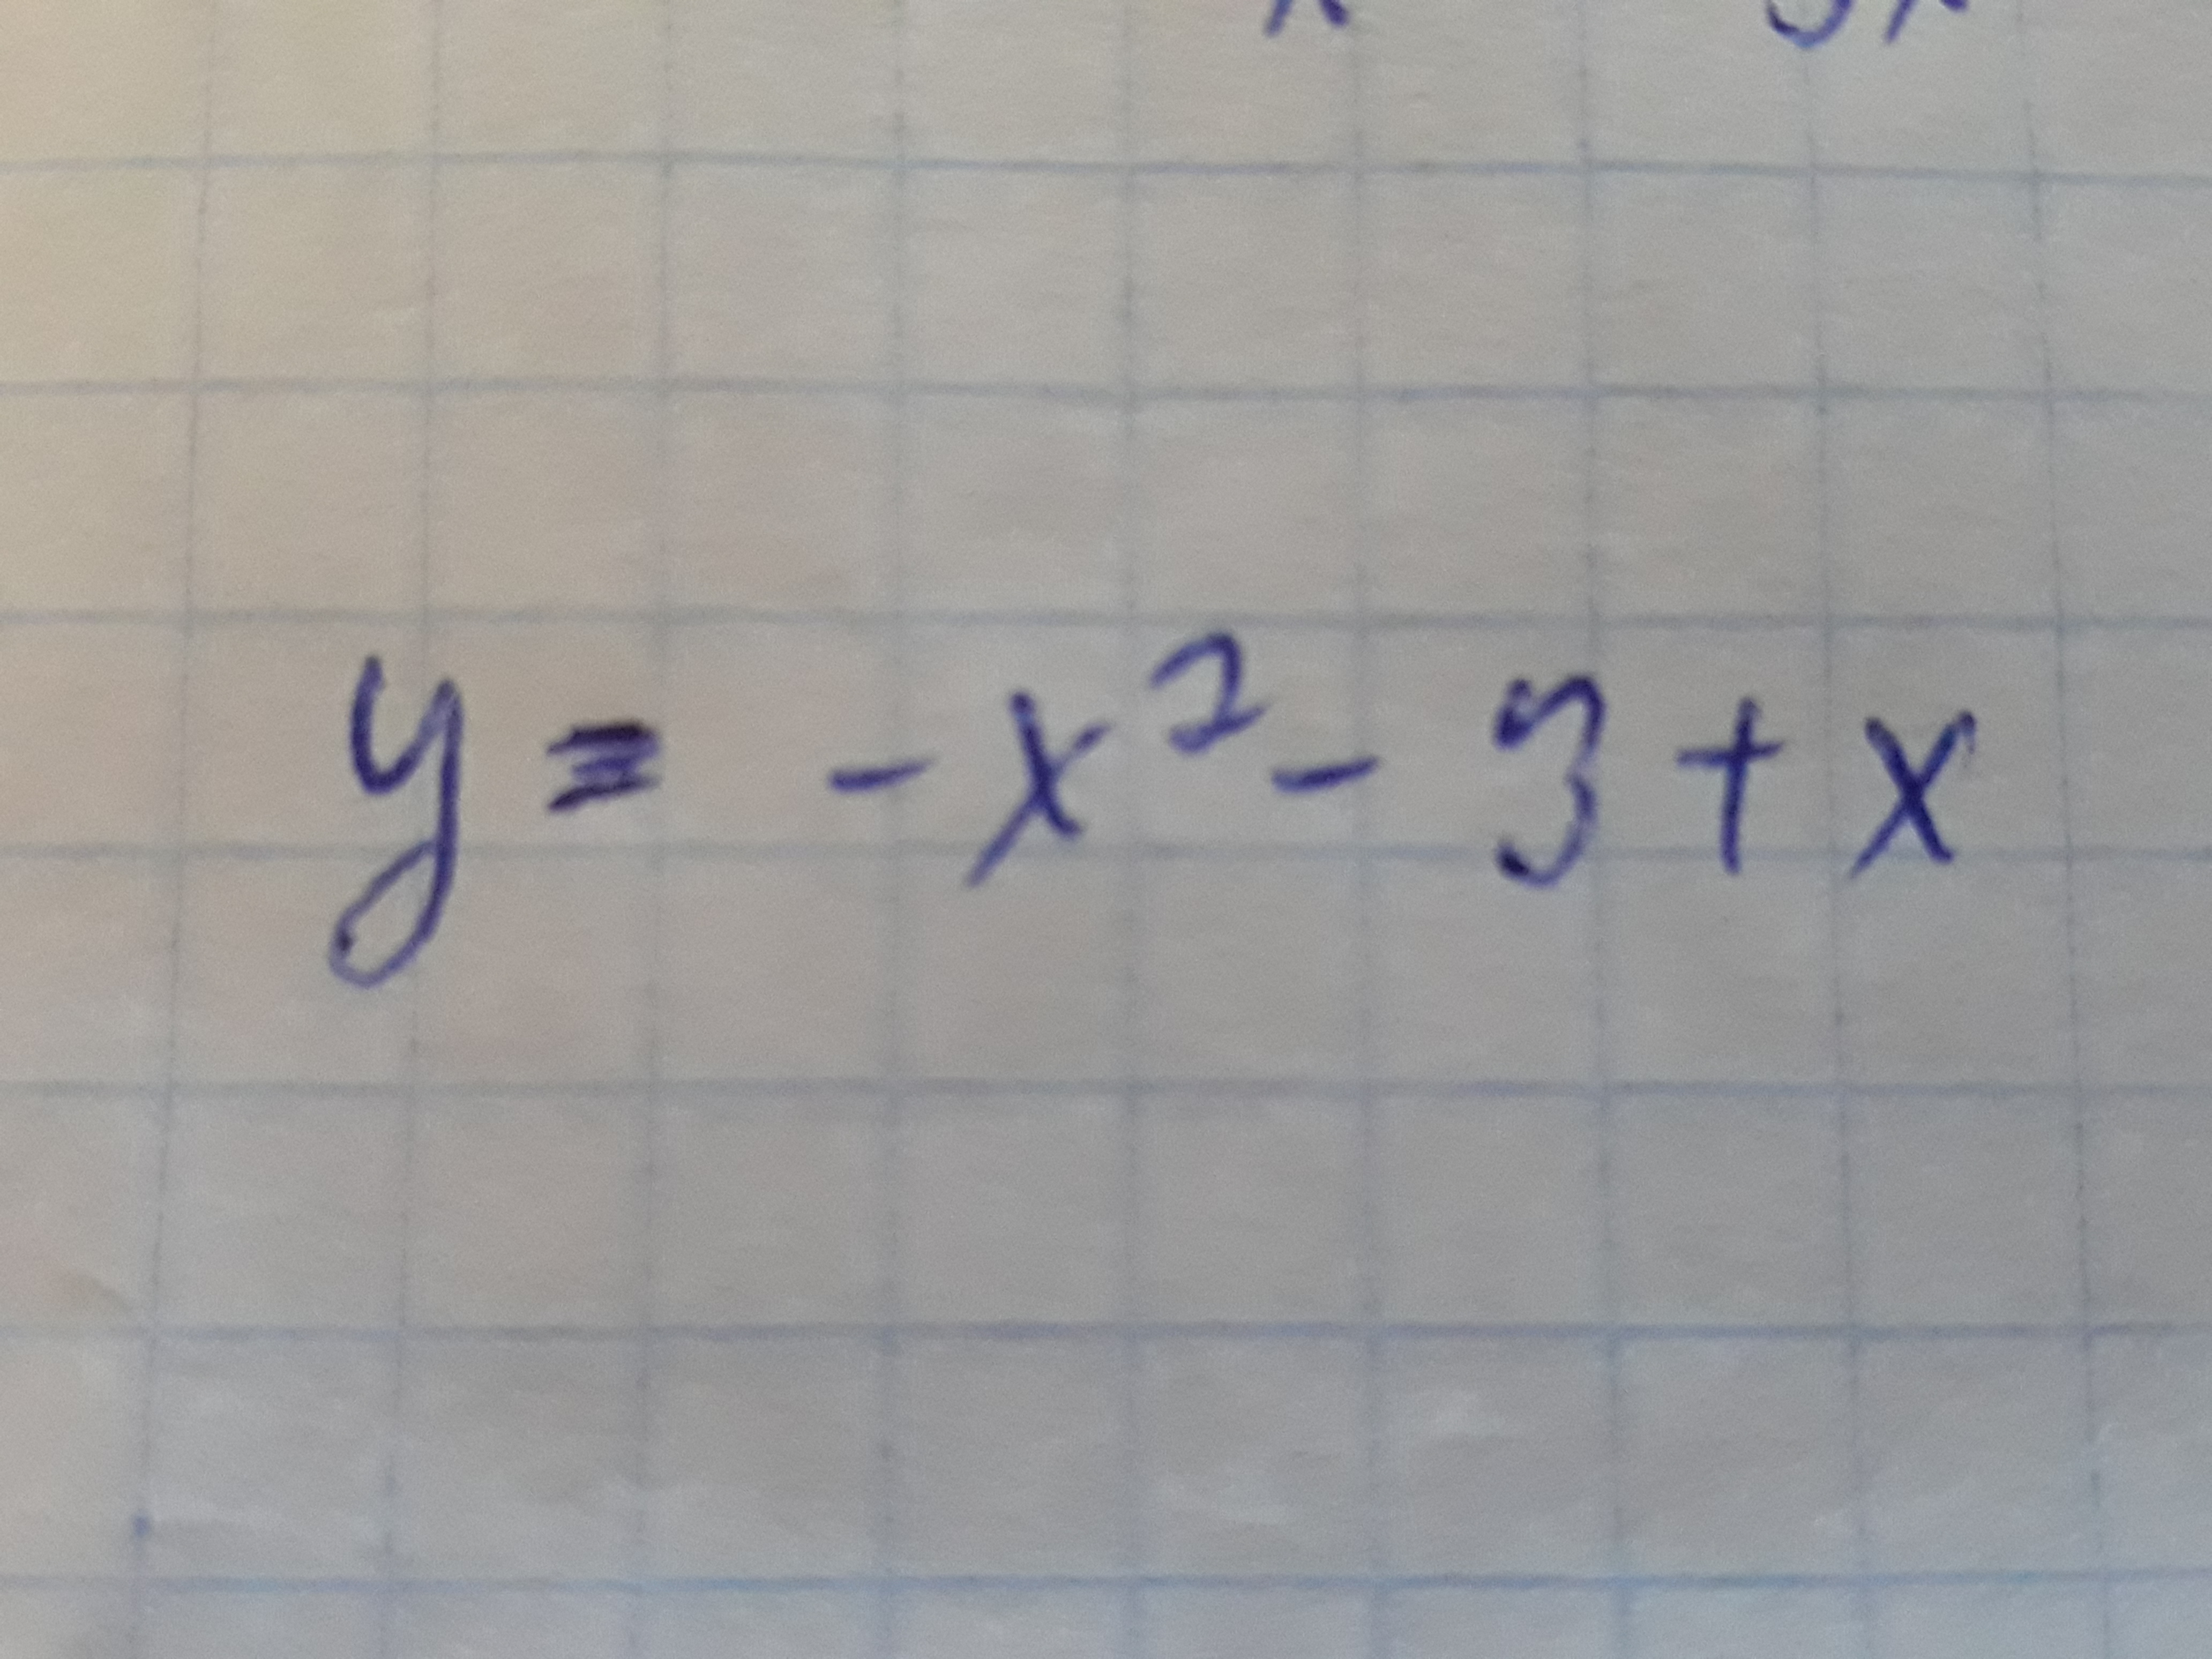 y = -x² - 3 + x